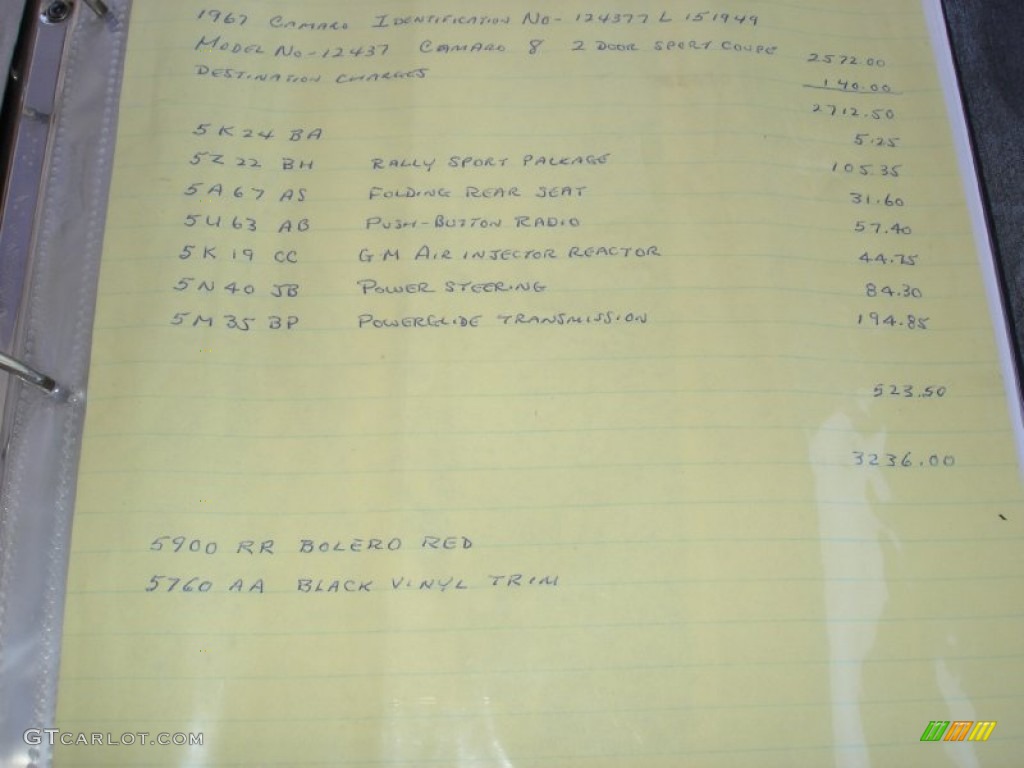 1967 CAMARO IDENTIFICATION NO- 124377 L 151949
MODEL NO-12437 CAMARO 8 2 DOOR SPORT COUPE 2572.00
DESTINATION CHARGES 140.00
2712.50
5K24 BA 5.25
5Z22 BH RALLY SPORT PACKAGE 105.35
5A67 AS FOLDING REAR SEAT 31.60
5U63 AB PUSH-BUTTON RADIO 57.40
5K19 CC GM AIR INJECTOR REACTOR 44.75
5N40 JB POWER STEERING 84.30
5M35 BP POWERGLIDE TRANSMISSION 194.85
523.50
3236.00
5900 RR BOLERO RED
5760 AA BLACK VINYL TRIM
GTCARLOT.COM